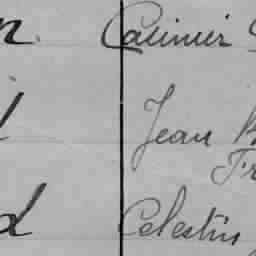 n. Casimir
l Jean
Fr
d Celestin